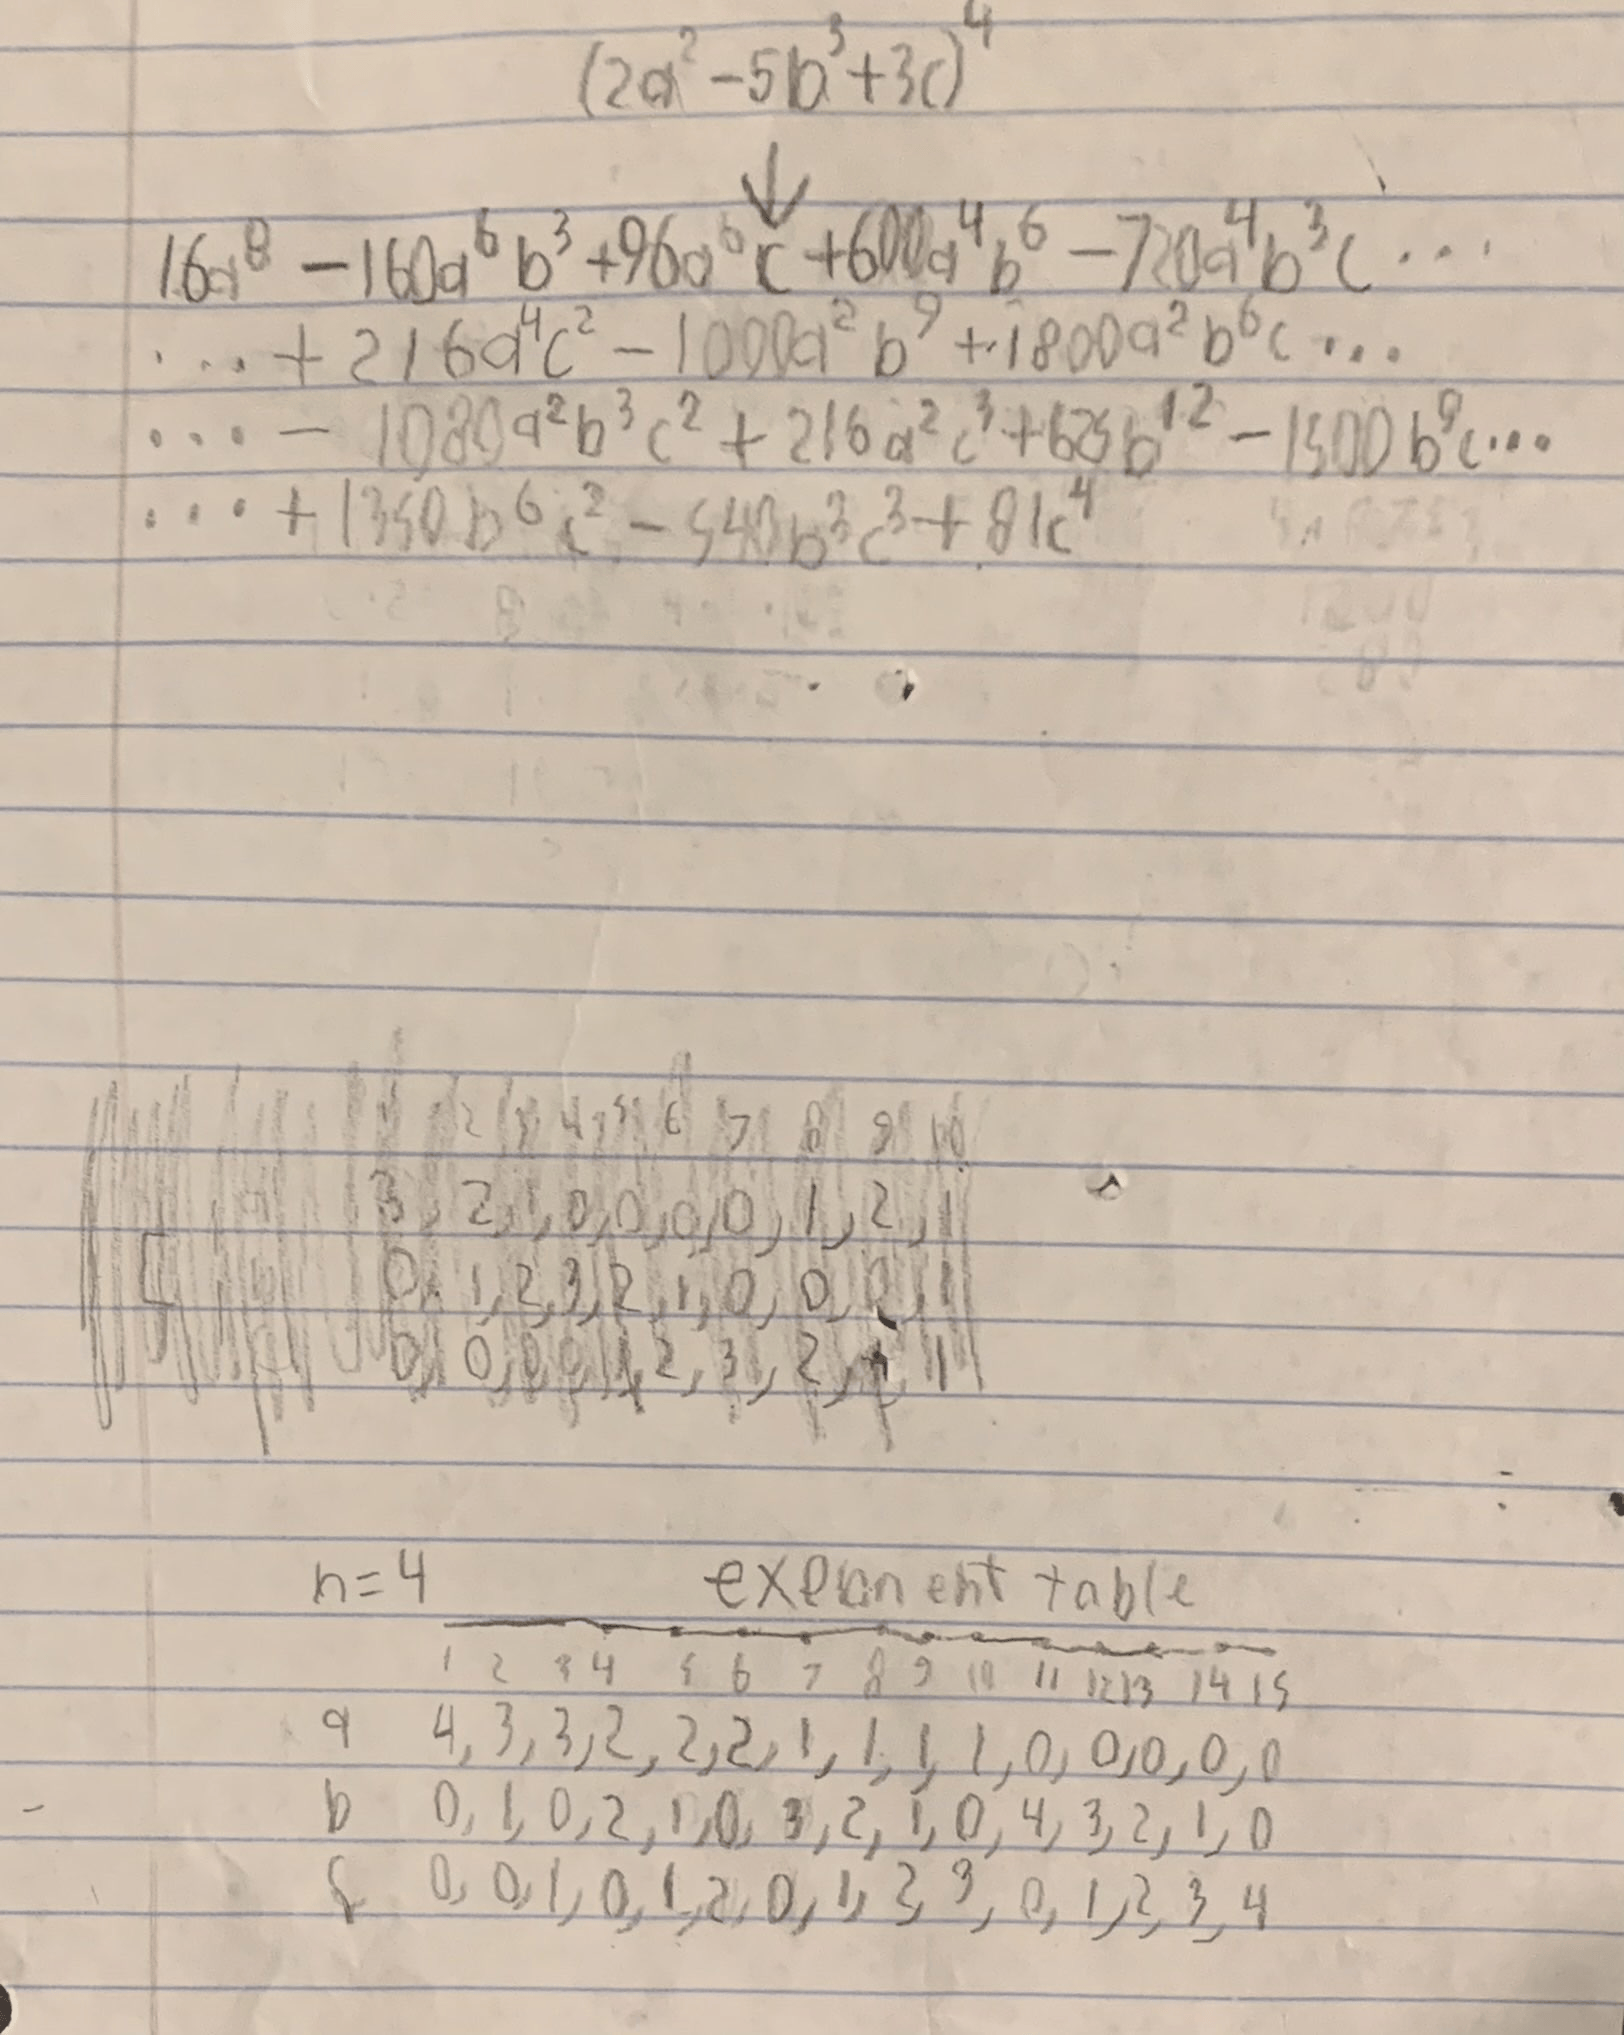 (2a² -5b³+3c)⁴
↓
16a⁸ -160a⁶b³ +96a⁶c +600a⁴b⁶ -720a⁴b³c ...
... + 216a⁴c² - 1000a²b⁹ + 1800a²b⁶c ...
... - 1080a²b³c² + 216a²c³ + 625b¹² - 1500b⁹c ...
... + 1350b⁶c² - 540b³c³ + 81c⁴
2 3 4 5 6 7 8 9 10
3, 2, 1, 0, 0, 0, 0, 1, 2, 1
0, 1, 2, 3, 2, 1, 0, 0, 0, 1
0, 0, 0, 0, 1, 2, 3, 2, 1, 1
n=4 exponent table
1 2 3 4 5 6 7 8 9 10 11 12 13 14 15
a 4, 3, 3, 2, 2, 2, 1, 1, 1, 1, 0, 0, 0, 0, 0
b 0, 1, 0, 2, 1, 0, 3, 2, 1, 0, 4, 3, 2, 1, 0
c 0, 0, 1, 0, 1, 2, 0, 1, 2, 3, 0, 1, 2, 3, 4